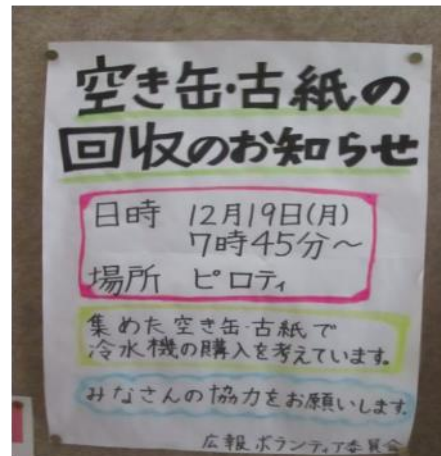 空き缶・古紙の
回収のお知らせ
日時 12月19日(月)
7時45分～
場所 ピロティ
集めた空き缶・古紙で
冷水機の購入を考えています。
みなさんの協力をお願いします。
広報ボランティア委員会